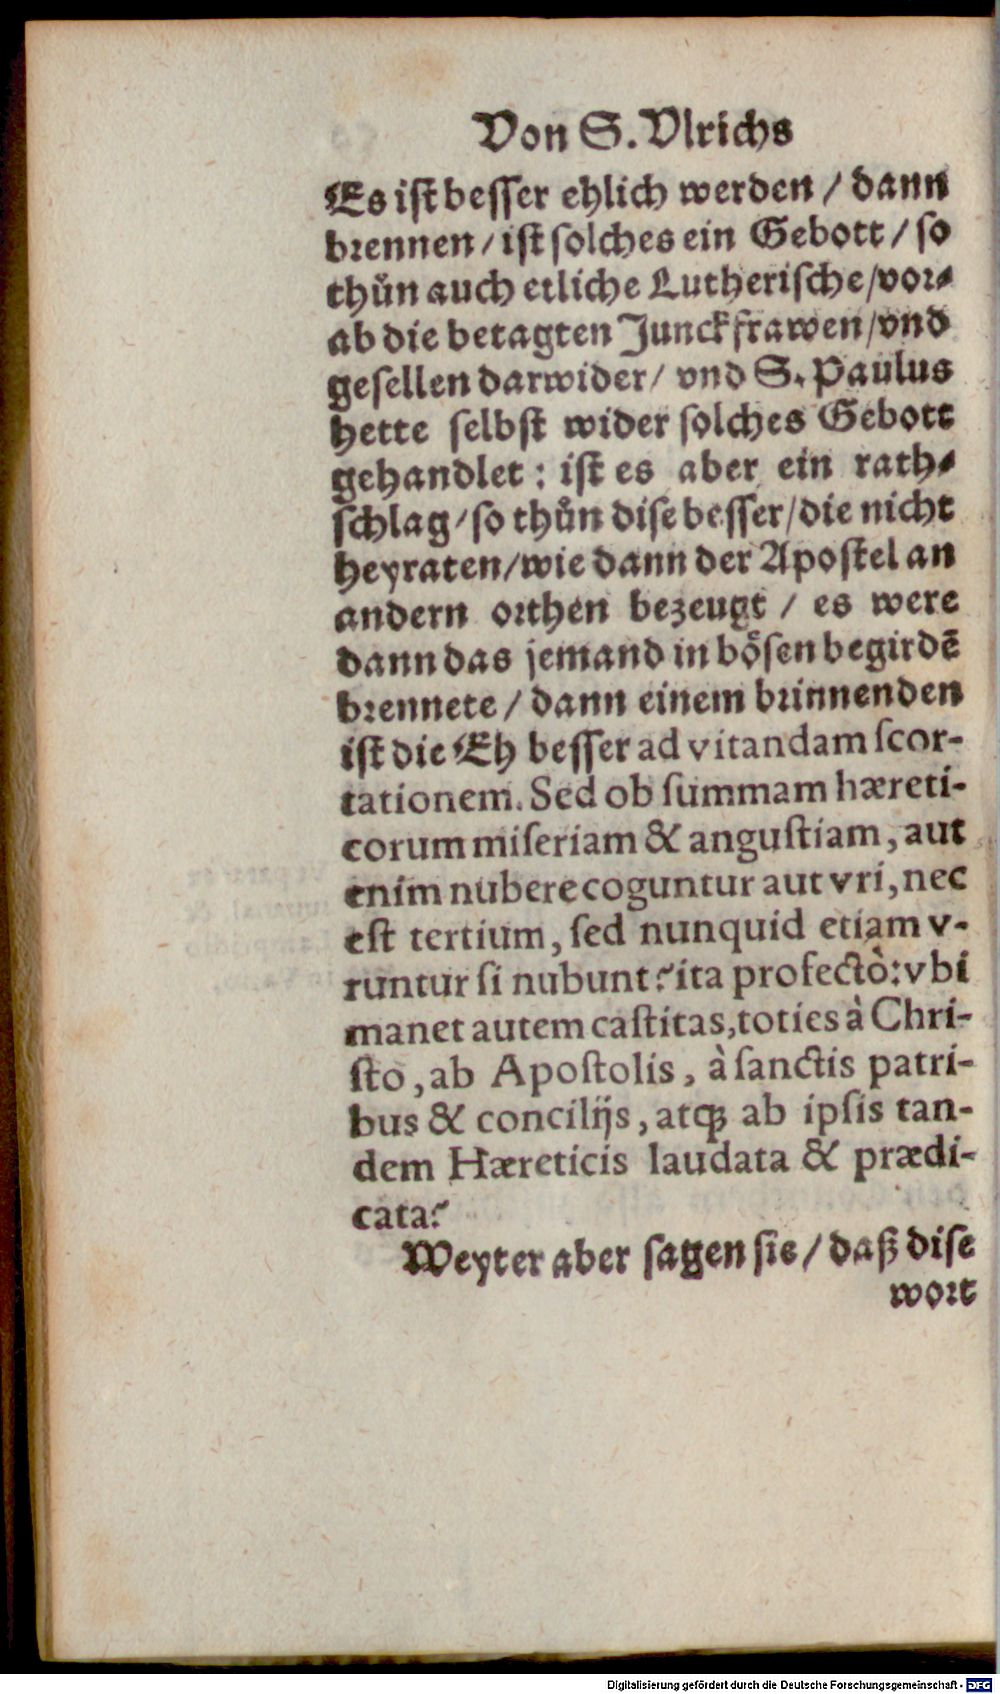 Von S. Vlrichs
Es ist besser ehlich werden / dann
brennen / ist solches ein Gebott / so
thůn auch etliche Lutherische / vor-
ab die betagten Junckfrawen / vnd
gesellen darwider / vnd S. Paulus
hette selbst wider solches Gebott
gehandlet : ist es aber ein rath-
schlag / so thůn dise besser / die nicht
heyraten / wie dann der Apostel an
andern orthen bezeugt / es were
dann das jemand in bösen begirdē
brennete / dann einem brinnenden
ist die Eh besser ad vitandam scor-
tationem. Sed ob summam hæreti-
corum miseriam & angustiam, aut
enim nubere coguntur aut vri, nec
est tertium, sed nunquid etiam v-
runtur si nubunt? ita profectò: vbi
manet autem castitas, toties à Chri-
sto, ab Apostolis, à sanctis patri-
bus & concilijs, atq; ab ipsis tan-
dem Hæreticis laudata & prædi-
cata?
Weyter aber sagen sie / daß dise
wort
Digitalisierung gefördert durch die Deutsche Forschungsgemeinschaft - DFG